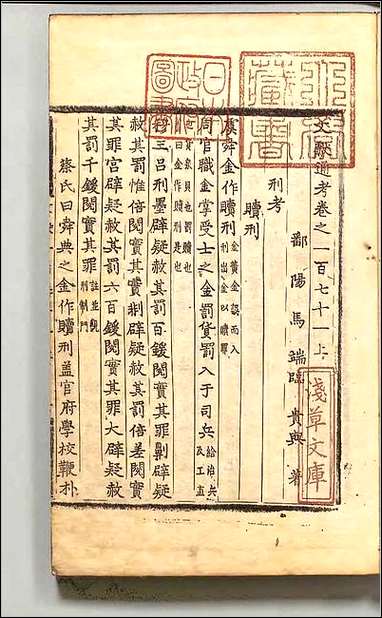 文獻通考卷之一百七十一上
鄱陽馬端臨貴與著
刑考
贖刑
虞舜金作贖刑金黃金誤而入刑出金以贖罪
周官職金掌受士之金罰貨罰入于司兵給治兵及工直
也貨泉貝也罰贖也
曰金作贖刑是也
三呂刑墨辟疑赦其罰百鍰閱實其罪劓辟疑
赦其罰惟倍閱實其罪剕辟疑赦其罰倍差閱實
其罪宮辟疑赦其罰六百鍰閱實其罪大辟疑赦
其罰千鍰閱實其罪註並見刑制門
蔡氏曰舜典之金作贖刑蓋官府學校鞭朴
淺草文庫
日本政府圖書
藏書